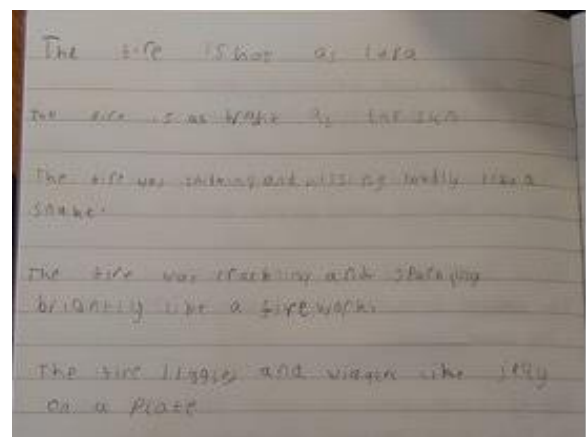 The fire is hot as lava
The fire is as brait as the sun
The fire was and hissing loudly like a
snake.
The fire was crackling and sparking
briantly like a fireworks
The fire jiggles and wiggles like jelly
on a plate